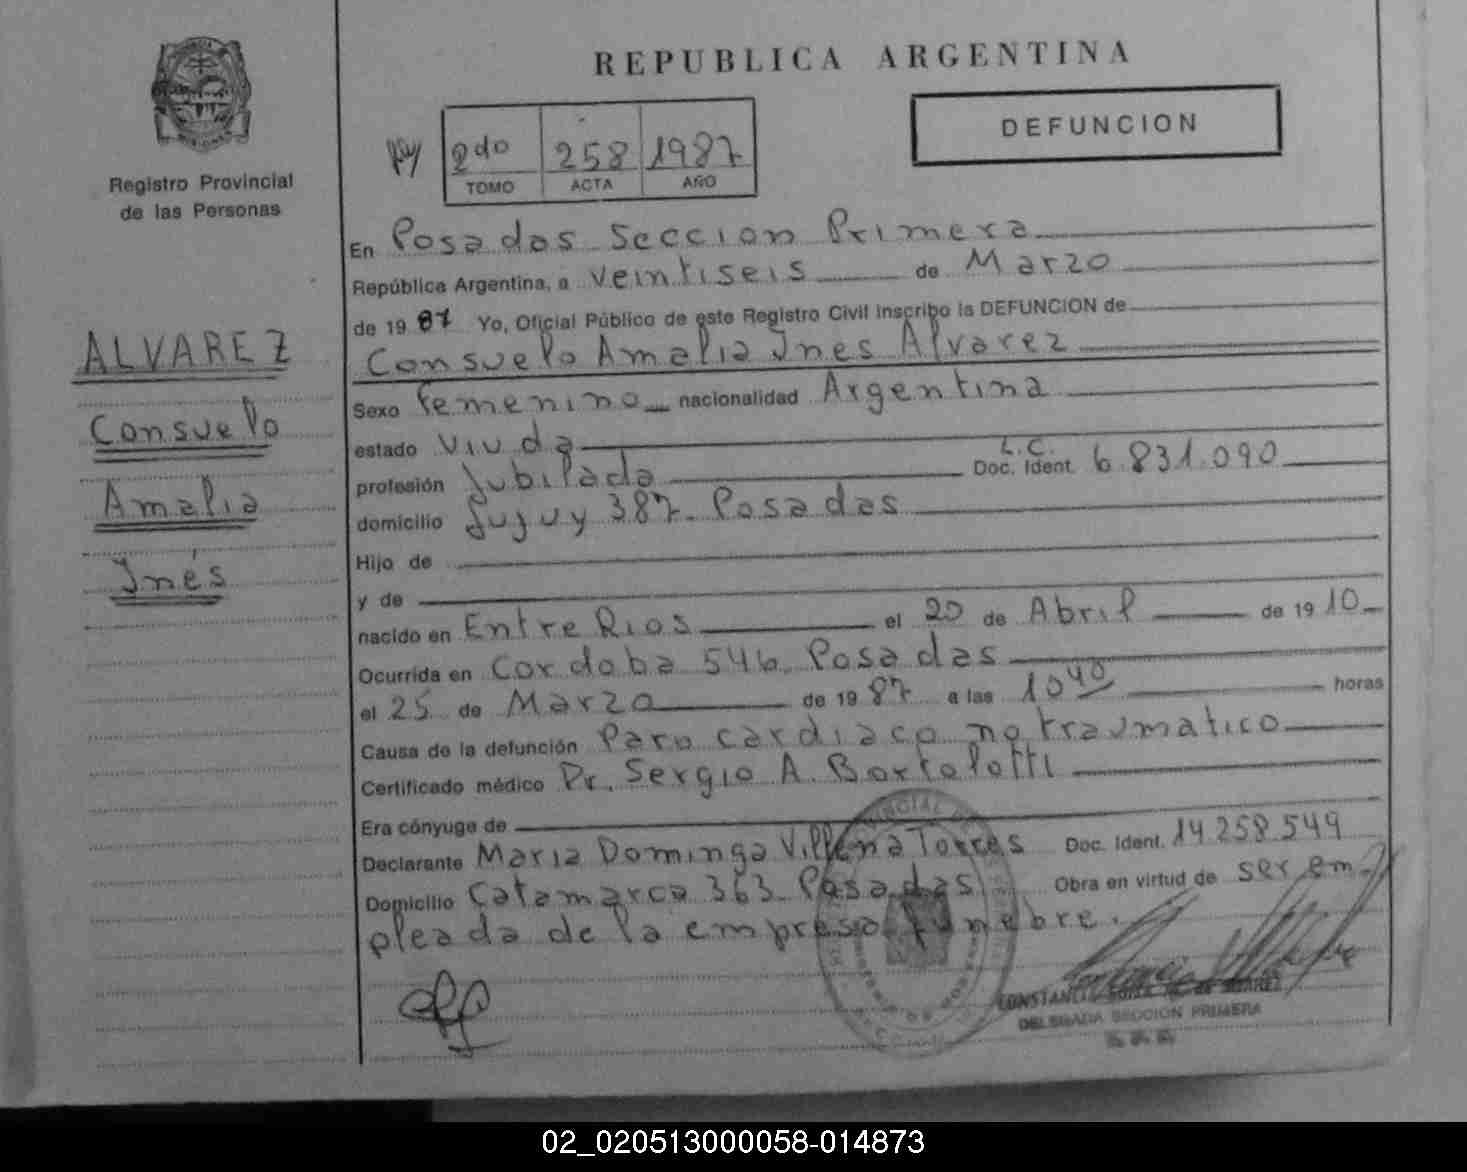 REPUBLICA ARGENTINA
DEFUNCION
Registro Provincial
de las Personas
2do 258 1987
TOMO ACTA AÑO
ALVAREZ
Consuelo
Amalia
Inés
En Posadas Seccion Primera
República Argentina, a veintiseis de Marzo
de 1987 Yo, Oficial Público de este Registro Civil inscribo la DEFUNCION de
Consuelo Amalia Ines Alvarez
Sexo femenino nacionalidad Argentina
estado viuda
L.C.
profesión Jubilada Doc. Ident. 6.831.090
domicilio Jujuy 387. Posadas
Hijo de
y de
nacido en Entre Rios el 20 de Abril de 1910
Ocurrida en Cordoba 546. Posadas
el 25 de Marzo de 1987 a las 10 40 horas
Causa de la defunción Paro cardiaco no traumatico
Certificado médico Dr. Sergio A. Bortolotti
Era cónyuge de
Declarante Maria Dominga Villena Torres Doc. Ident. 14.258.549
Domicilio Catamarca 363. Posadas Obra en virtud de ser em-
pleada de la empresa funebre.
DELEGADA SECCION PRIMERA
02_020513000058-014873